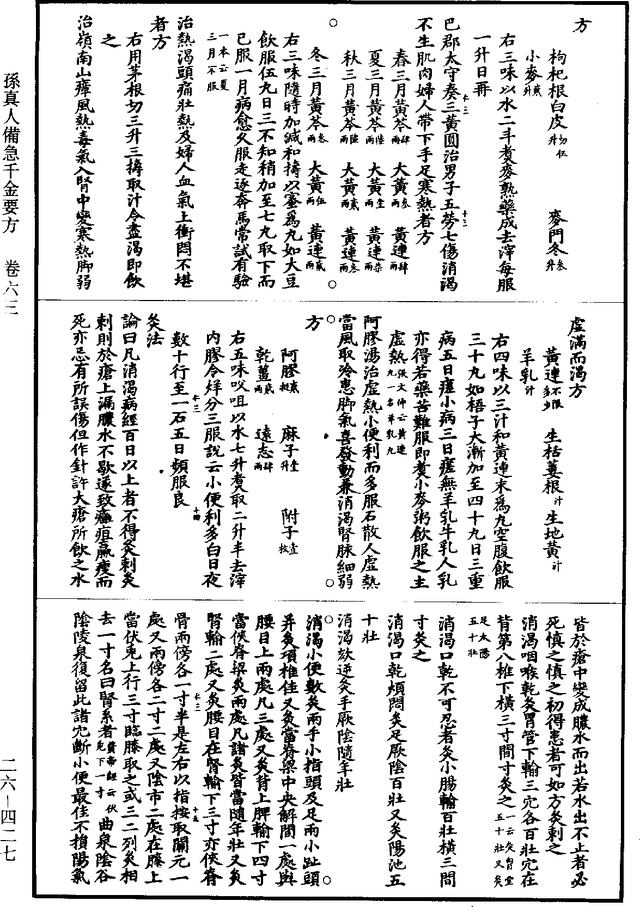 方
枸杞根白皮切伍升 麥門冬叁升
小麥貳升
右三味以水二斗煮麥熟藥成去滓每服
一升日再
巴郡太守奏三黃圓治男子五勞七傷消渴
不生肌肉婦人帶下手足寒熱者方
春三月黃芩肆兩 大黃叁兩 黃連肆兩
夏三月黃芩陸兩 大黃壹兩 黃連柒兩
秋三月黃芩陸兩 大黃貳兩 黃連叁兩
冬三月黃芩叁兩 大黃伍兩 黃連貳兩
右三味隨時加減和擣以蜜為丸如大豆
飲服伍丸日三不知稍加至七丸取下而
已服一月病愈久服走逐奔馬常試有驗
一本云夏三月不服
治熱渴頭痛壯熱及婦人血氣上衝悶不堪
者方
右用茅根切三升三擣取汁令盡渴即飲
之
治嶺南山瘴風熱毒氣入腎中變寒熱脚弱
虛滿而渴方
黃連不限多少 生栝蔞根汁 生地黃汁
羊乳汁
右四味以三汁和黃連末為丸空腹飲服
三十丸如梧子大漸加至四十丸日三重
病五日瘥小病三日瘥無羊乳牛乳人乳
亦得若藥苦難服即煮小麥粥飲服之主
虛熱張文仲云黃連丸一名羊乳丸
阿膠湯治虛熱小便利而多服石散人虛熱
當風取冷患脚氣喜發動兼消渴腎脉細弱
方
阿膠貳挺 麻子壹升 附子壹枚
乾薑貳兩 遠志肆兩
右五味㕮咀以水七升煮取二升半去滓
內膠令烊分三服說云小便利多白日夜
數十行至一石五日頻服良
灸法
論曰凡消渴病經百日以上者不得灸刺灸
刺則於瘡上漏膿水不歇遂致癰疽羸瘦而
死亦忌有所誤傷但作針許大瘡所飲之水
皆於瘡中變成膿水而出若水出不止者必
死慎之慎之初得患者可如方灸刺之
消渴咽喉乾灸胃管下輸三穴各百壯穴在
背第八椎下橫三寸間寸灸之一云灸胃堂五十壯又灸
足太陽五十壯
消渴口乾不可忍者灸小腸輸百壯橫三間
寸灸之
消渴口乾煩悶灸足厥陰百壯又灸陽池五
十壯
消渴欬逆灸手厥陰隨年壯
消渴小便數灸兩手小指頭及足兩小趾頭
并灸項椎佳又灸當脊梁中央解間一處與
腰目上兩處凡三處又灸背上脾輸下四寸
當俠脊梁灸兩處凡諸灸皆當隨年壯又灸
腎輸二處又灸腰目在腎輸下三寸亦俠脊
骨兩傍各一寸半是左右以指按取關元一
處又兩傍各二寸二處又陰市二處在膝上
當伏兔上行三寸臨膝取之或三二列灸相
去一寸名曰腎系者黃帝經云伏兔下一寸曲泉陰谷
陰陵泉復留此諸穴斷小便最佳不損陽氣
孫真人備急千金要方 卷六三
二六—四二七